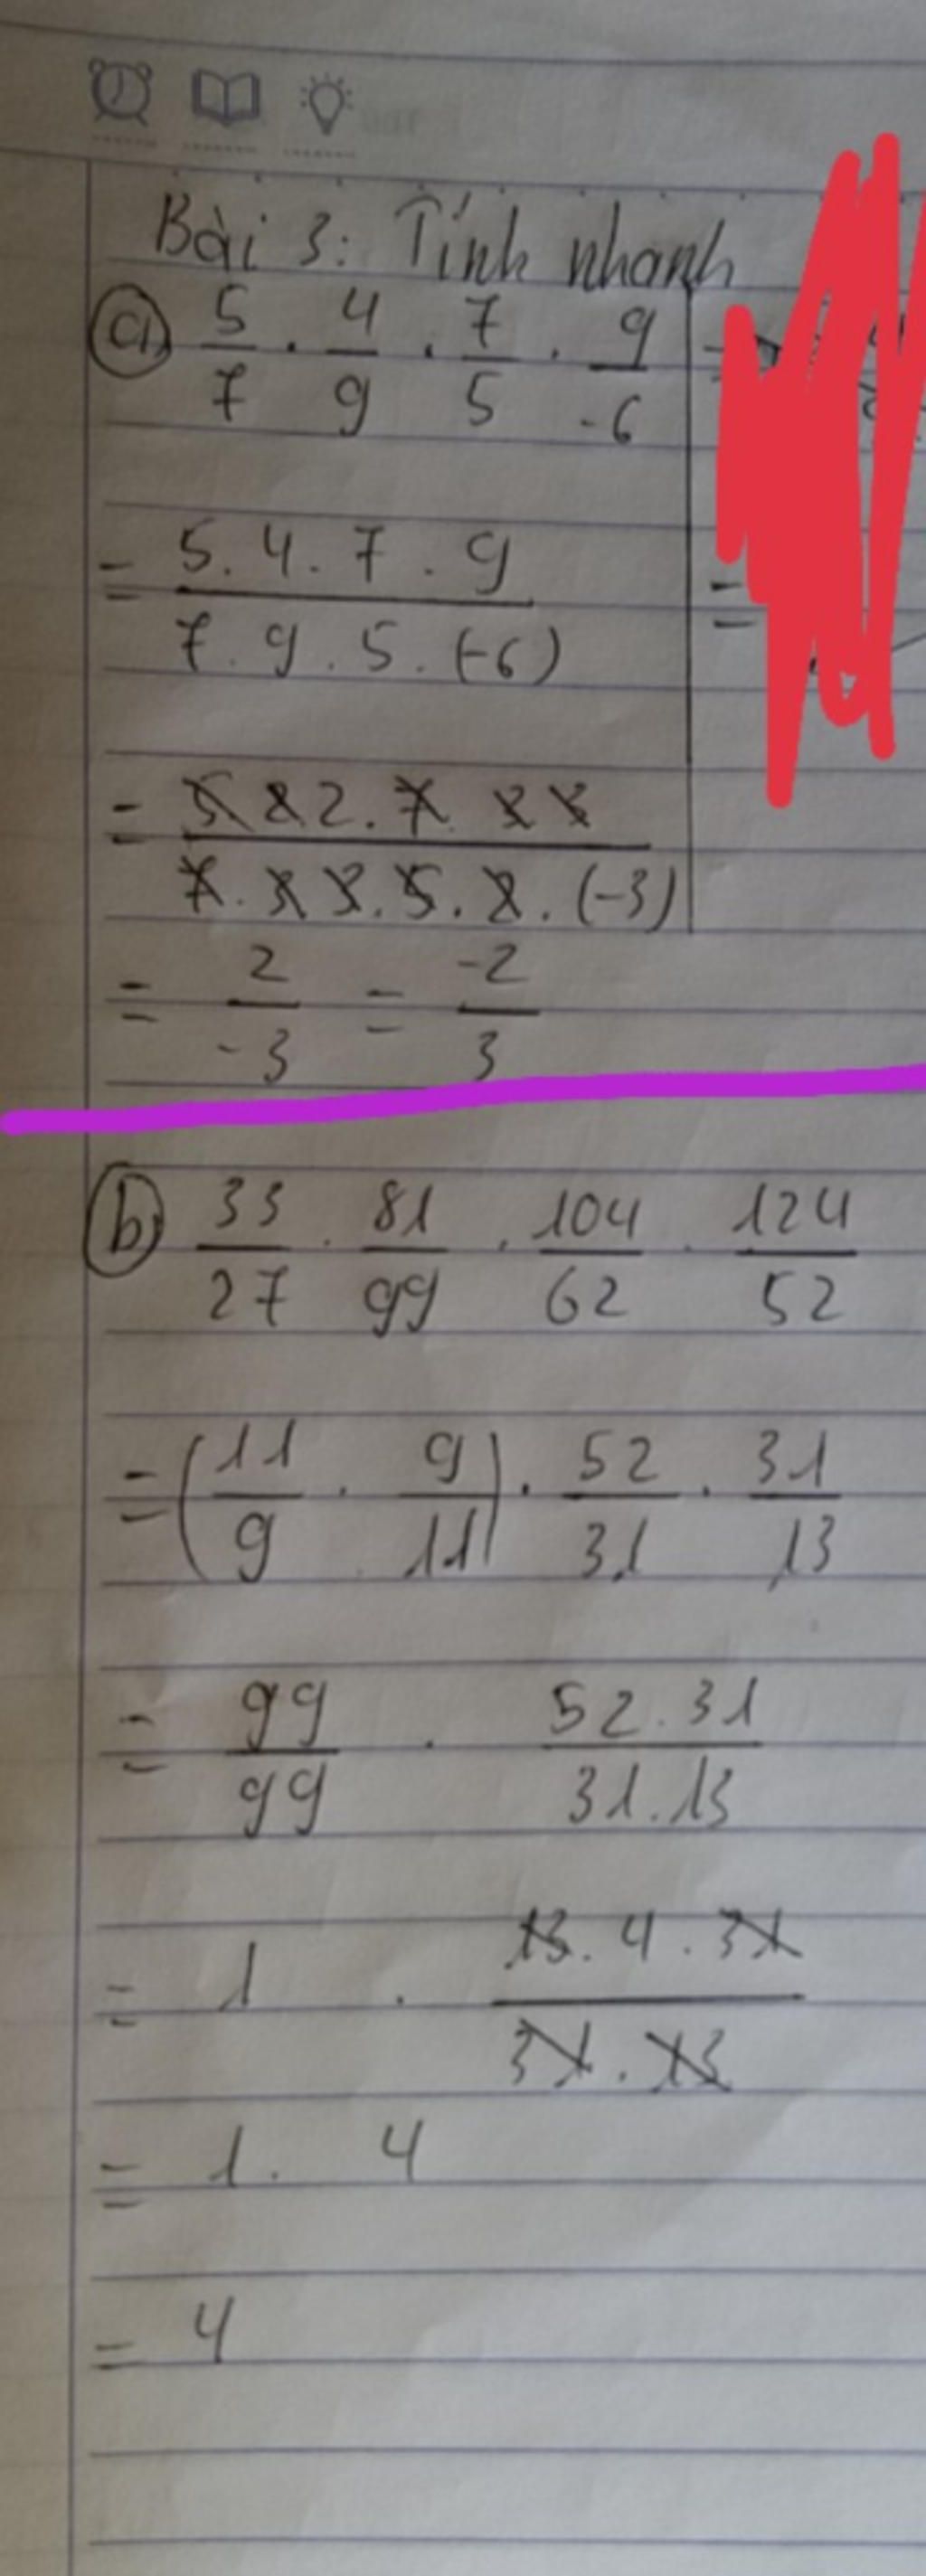 Bài 3: Tính nhanh
a) 5/7 . 4/9 . 7/5 . 9/-6
= 5.4.7.9 / 7.9.5.(-6)
= 5.2.2.7.3.3 / 7.3.3.5.2.(-3)
= 2/-3 = -2/3
b) 33/27 . 81/99 . 104/62 . 124/52
= (11/9 . 9/11) . 52/31 . 31/13
= 99/99 . 52.31 / 31.13
= 1 . 13.4.31 / 31.13
= 1. 4
= 4